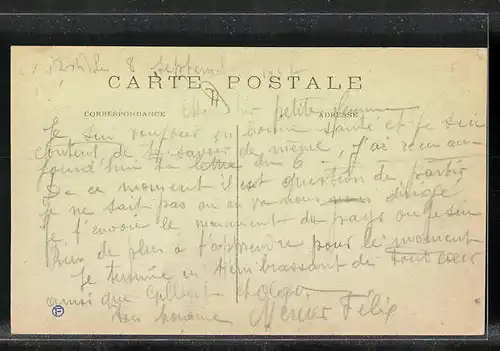 8 Septembre
CARTE POSTALE
CORRESPONDANCE
ADRESSE
petite femme
Je suis toujours en bonne santé et je suis
content de te savoir de même, j'ai reçu au-
jourd'hui ta lettre du 6
De ce moment il est question de partir
je ne sait pas ou on va nous dirigé
je t'envoie le monument du pays ou je suis
Rien de plus a t'apprendre pour le moment
Je termine en t'embrassant de tout cœur
ainsi que
ton homme Felix
F